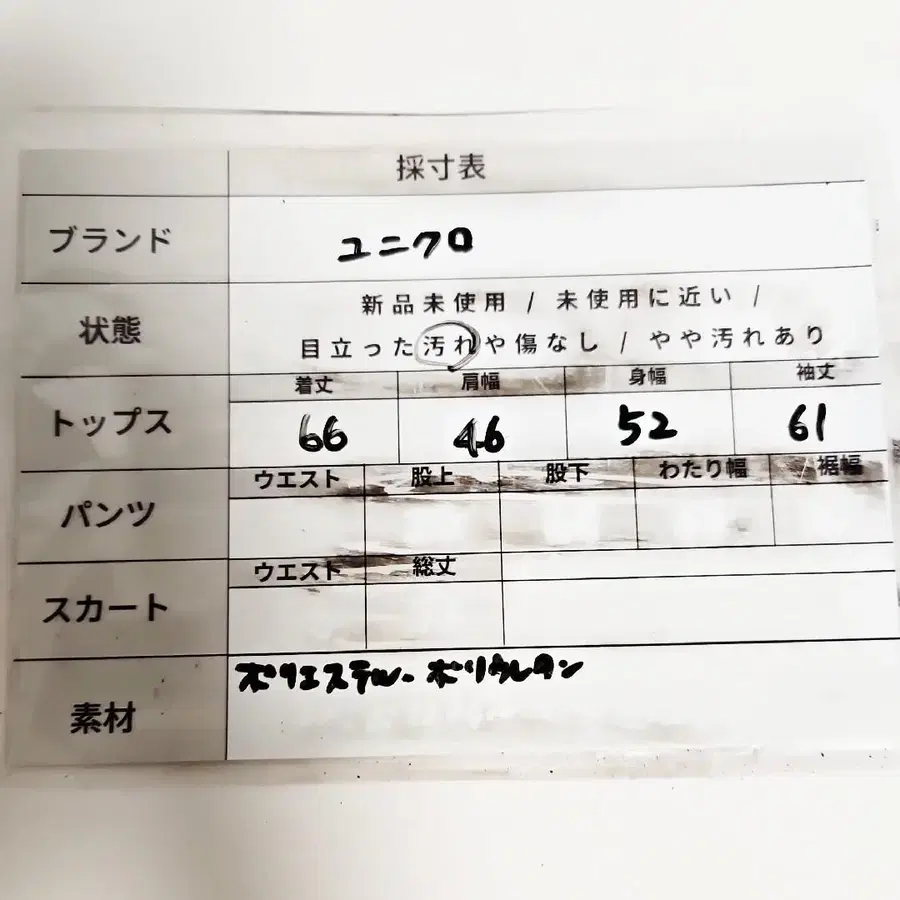 採寸表
ブランド ユニクロ
状態 新品未使用 / 未使用に近い /
目立った汚れや傷なし / やや汚れあり
着丈 肩幅 身幅 袖丈
トップス 66 46 52 61
ウエスト 股上 股下 わたり幅 裾幅
パンツ
ウエスト 総丈
スカート
素材 ポリエステル・ポリウレタン